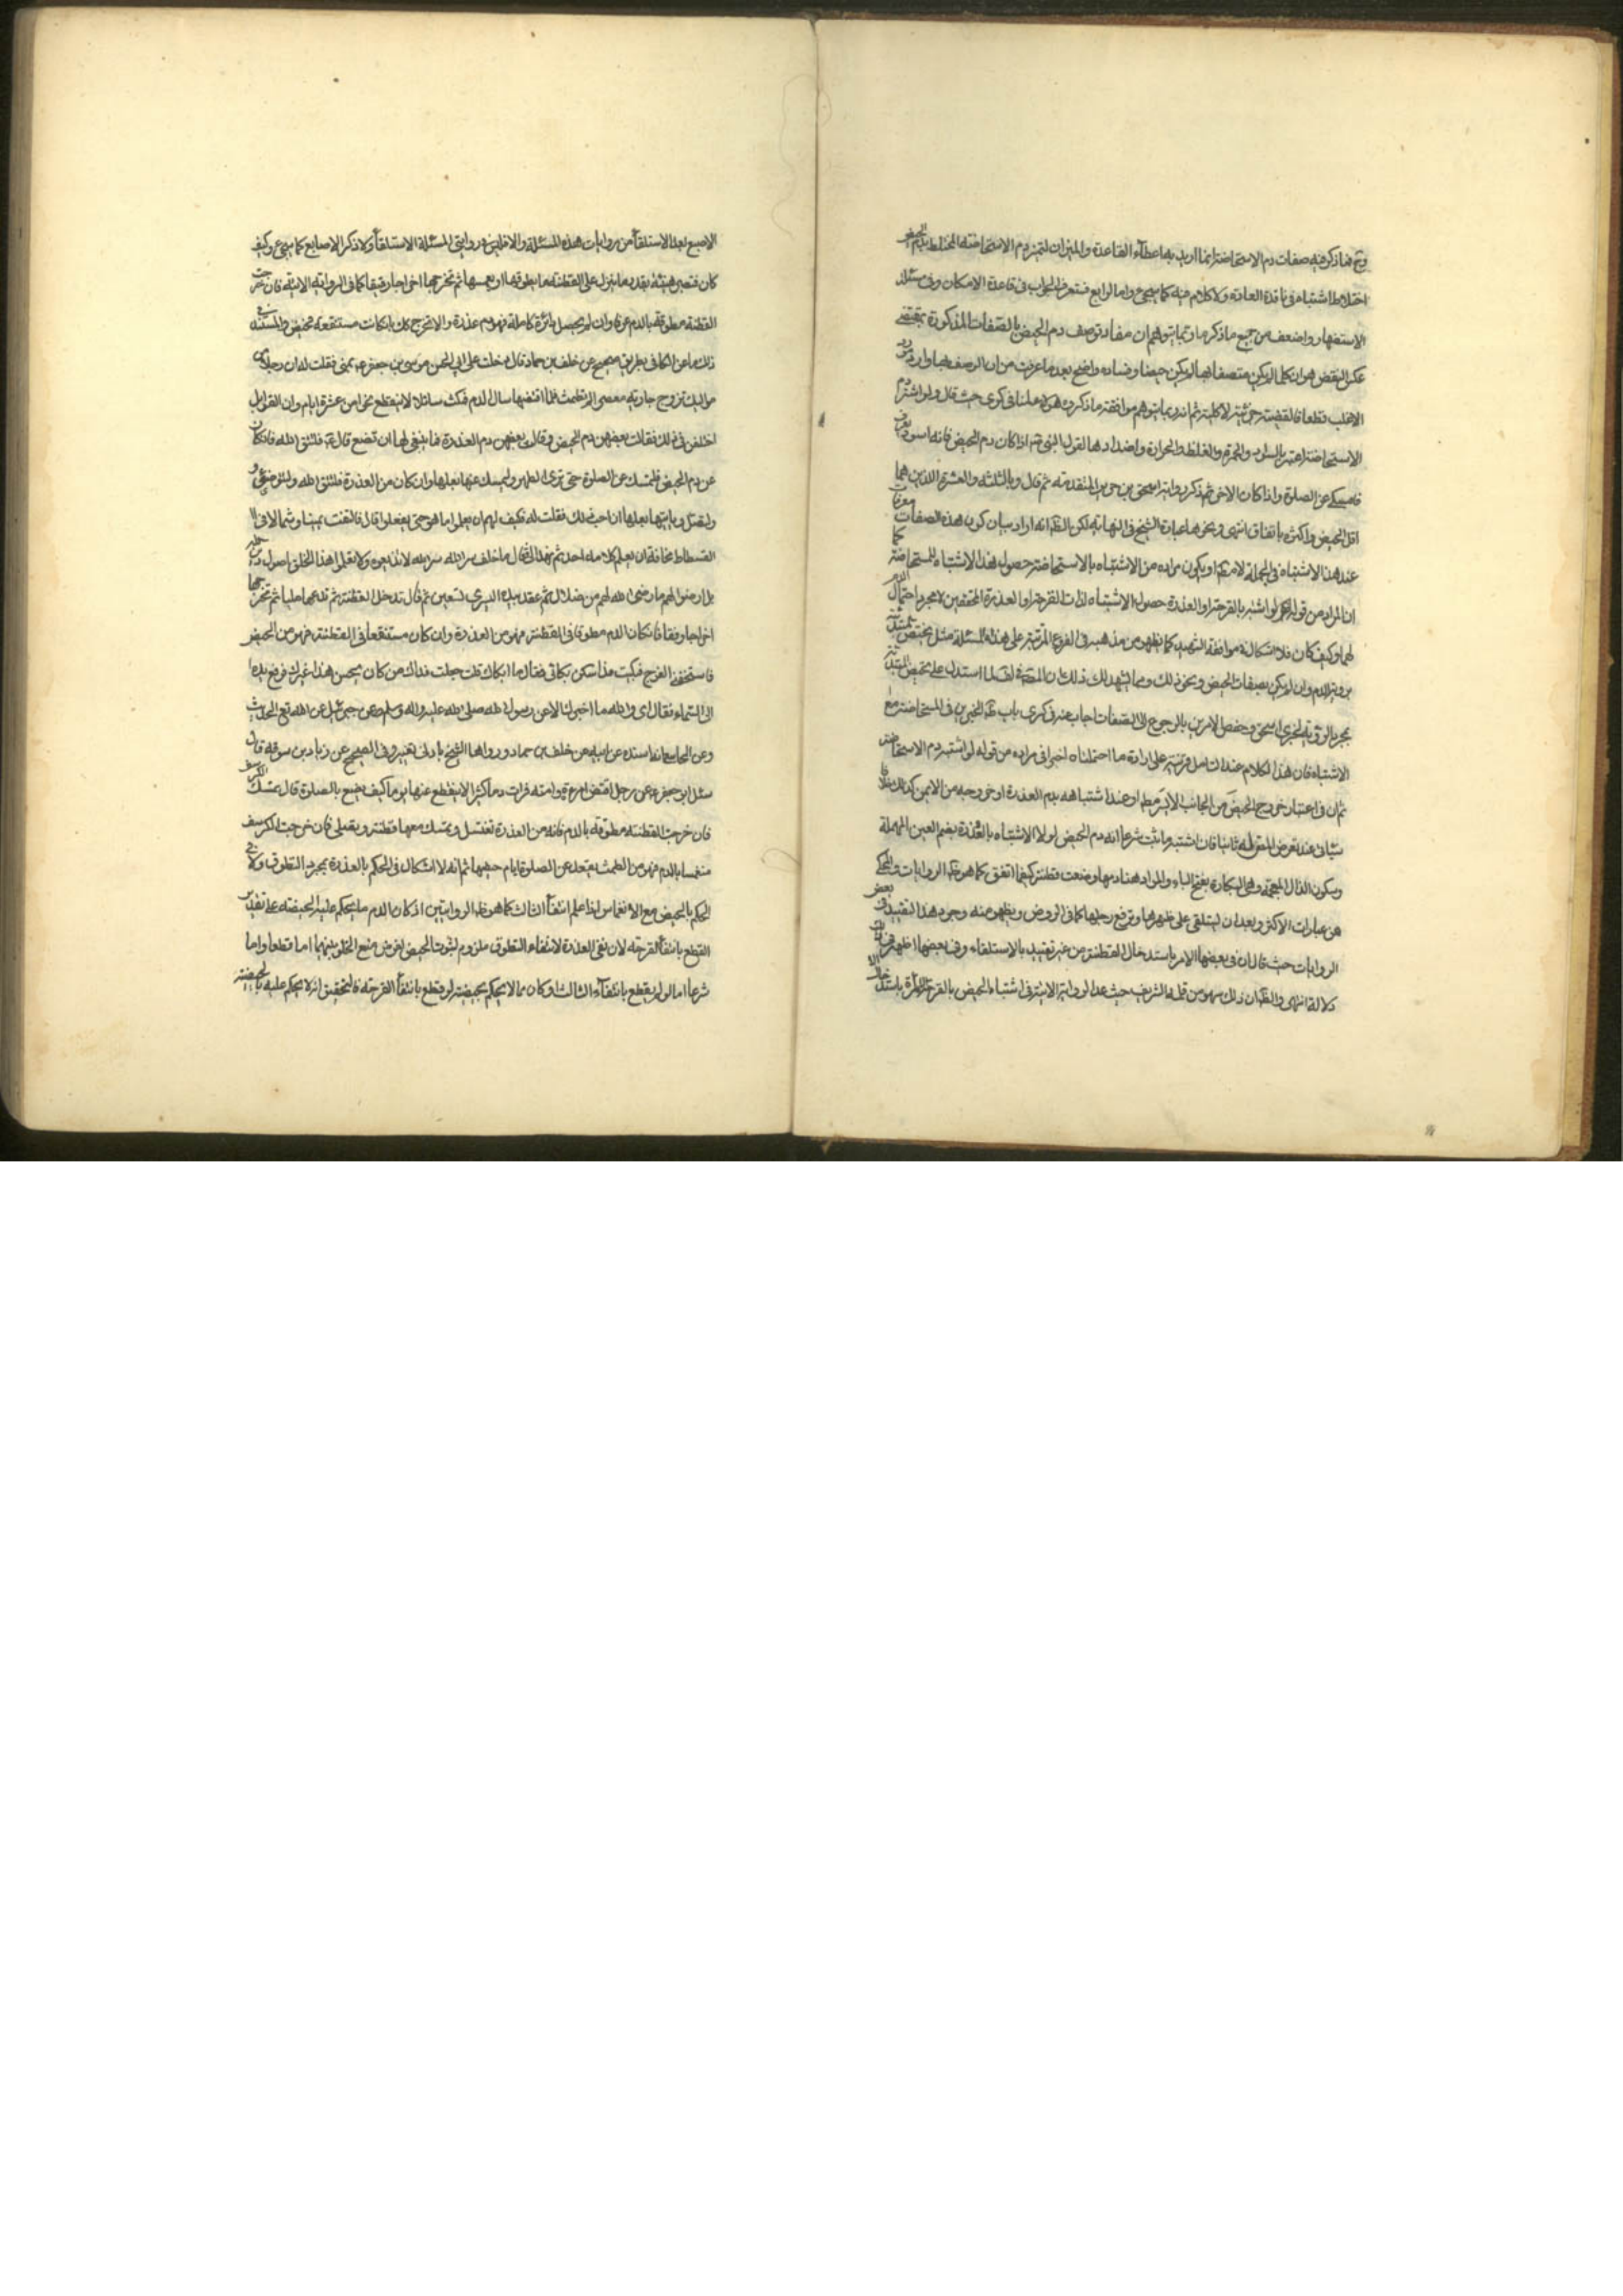 وح فما ذكر فيه صفات دم الاستحاضة انما اريد بها اعطاء القاعدة والميزان لتميز دم الاستحاضة المختلط بدم الحيض
اختلاط اشتباه في فاقدة العادة ولا كلام فيه كما سيجئ واما الرابع فستعرف الجواب في قاعدة الامكان وفي مسئلة
الاستظهار واضعف من جميع ما ذكر ما ربما يتوهم ان مفاد توصيف دم الحيض بالصفات المذكورة بمقتضى
عكس النقيض هو ان كلما لم يكن متصفا بها لم يكن حيضا وفساده واضح بعد ما عرفت من ان الوصف بها وارد مورد
الاغلب قطعا فالقضية جزئية لا كلية ثم انه ربما يتوهم موافقة ما ذكروه هنا في كرى حيث قال ولو اشتبه دم
الاستحاضة اعتبر بالسواد والحمرة والغلظ والحرارة واضدادها لقول النبي اذا كان دم الحيض فانه اسود يعرف
فامسكي عن الصلوة واذا كان الاخر ثم ذكر رواية اسحق بن جرير المتقدمة ثم قال وبالثلثة والعشرة اللذين هما
اقل الحيض واكثره باتفاق انتهى ونحوها عبارة الشيخ في النهاية لكن الظ انه اراد بيان كون هذه الصفات معرفات
عند هذا الاشتباه في الجملة لا مطلقا او يكون مراده من الاشتباه بالاستحاضة حصول هذا الاشتباه للمستحاضة كما
ان المراد من قوله لو اشتبه بالقرحة او العذرة حصول الاشتباه لذات القرحة او العذرة المحققين لا مجرد احتمال الدم
لهما وكيف كان فلا اشكال في موافقة الشهيد كما يظهر من مذهبه في الفروع المترتبة على هذه المسئلة مثل تحيض المبتدئة
برؤية الدم وان لم يكن بصفات الحيض ونحو ذلك ومما يشهد لذلك ان المص في لما استدل على تحيض المبتدئة
بمجرد الرؤية لخبري اسحق وحفص الامرين بالرجوع الى الصفات اجاب عنه في كرى باب ظ الخبرين في المستحاضة مع
الاشتباه فان هذا الكلام عند التامل قرينة على ارادة ما احتملناه اخيرا في مراده من قوله لو اشتبه دم الاستحاضة
ثم ان في اعتبار خروج الحيض من الجانب الايسر مطلقا او عند اشتباهه بدم العذرة او خروجه من الايمن كذلك خلافا
سيأتي عند تعرض المص له ثانيا فان اشتبه ما ثبت شرعا انه دم الحيض لولا الاشتباه بالعذرة بضم العين المهملة
وسكون الذال المعجمة وهي البكارة بفتح الباء والمراد هنا دمها وضعت قطنة كيفما اتفق كما هو ظ الروايات والمحكي
عن عبارات الاكثر وبعد ان تستلقي على ظهرها وترفع رجليها كما في الروض ويظهر منه وجود هذا التقييد في بعض
الروايات حيث قال ان في بعضها الامر باستدخال القطنة من غير تقييد بالاستلقاء وفي بعضها اظهر في ذلك
دلالة انتهى والظ ان ذلك سهو من قلمه الشريف حيث عد الرواية الاتية في اشتباه الحيض بالقرحة الآمرة بادخال
الاصبع بعد الاستلقاء من روايات هذه المسئلة والا فليس في روايتي المسئلة الاستلقاء ولا ذكر الاصابع كما سيجئ وكيف
كان فتصبر هنيئة بقدر ما ينزل على القطنة ما يطوقها او يغمسها ثم تخرجها اخراجا رفيقا كما في الرواية الاتية فان خرجت
القطنة مطوقة بالدم عرفا وان لم يحصل دائرة كاملة فهو دم عذرة والا تخرج كك بل كانت مستنقعة تحيض والمستند في
ذلك ما عن الكافي بطريق صحيح عن خلف بن حماد قال دخلت على ابي الحسن موسى بن جعفر ع بمنى فقلت له ان رجلا من
مواليك تزوج جارية معصرا لم تطمث فلما اقتضها سال الدم فمكث سائلا لا ينقطع نحوا من عشرة ايام وان القوابل
اختلفن في ذلك فقالت بعضهن دم الحيض وقالت بعضهن دم العذرة فما ينبغي لها ان تصنع قال فلتتق الله فان كان
من دم الحيض فلتمسك عن الصلوة حتى ترى الطهر وليمسك عنها بعلها وان كان من العذرة فلتتق الله ولتتوضئ و
ولتصل ويأتيها بعلها ان احب ذلك فقلت له فكيف لهم ان يعلموا ما هو حتى يفعلوا قال فالتفت يمينا وشمالا في
الفسطاط مخافة ان يسمع كلامه احد ثم نهد الي فقال يا خلف سر الله سر الله لا تذيعوه ولا تعلموا هذا الخلق اصول دين الله
بل ارضوا لهم ما رضى الله لهم من ضلال ثم عقد بيده اليسرى تسعين ثم قال تدخل القطنة ثم تدعها مليا ثم تخرجها
اخراجا رفيقا فان كان الدم مطوقا في القطنة فهو من العذرة وان كان مستنقعا في القطنة فهو من الحيض
فاستخفني الفرح فبكيت فلما سكن بكائي فقال ما ابكاك قلت جعلت فداك من كان يحسن هذا غيرك فرفع يده
الى السماء فقال اي والله ما اخبرك الا عن رسول الله صلى الله عليه واله وسلم عن جبرئيل عن الله تع الحديث
وعن المحاسن انه اسنده عن ابيه عن خلف بن حماد ورواها الشيخ بادنى تغيير وفي الصحيح عن زياد بن سوقه قال
سئل ابو جعفر ع عن رجل اقتض امرءته او امته فرات دما كثيرا لا ينقطع عنها يوما كيف تصنع بالصلوة قال تمسك الكرسف
فان خرجت القطنة مطوقة بالدم فانه من العذرة تغتسل وتمسك معها قطنة وتصلي فان خرجت الكرسف
منغمسا بالدم فهو من الطمث تقعد عن الصلوة ايام حيضها ثم انه لا اشكال في الحكم بالعذرة بمجرد التطوق ولا في
الحكم بالحيض مع الانغماس اذا علم انتفاء الثالث كما هو ظ الروايتين اذ كان الدم مما يحكم عليه بالحيضية على تقدير
القطع بانتفاء القرحة لان نفي العذرة لانتفاء التطوق ملزوم لثبوت الحيض لفرض منع الخلو بينهما اما قطعا واما
شرعا اما لو لم يقطع بانتفاء الثالث او كان مما لا يحكم بحيضيته لو قطع بانتفاء القرحة فالتحقيق انه لا يحكم عليه بالحيضية